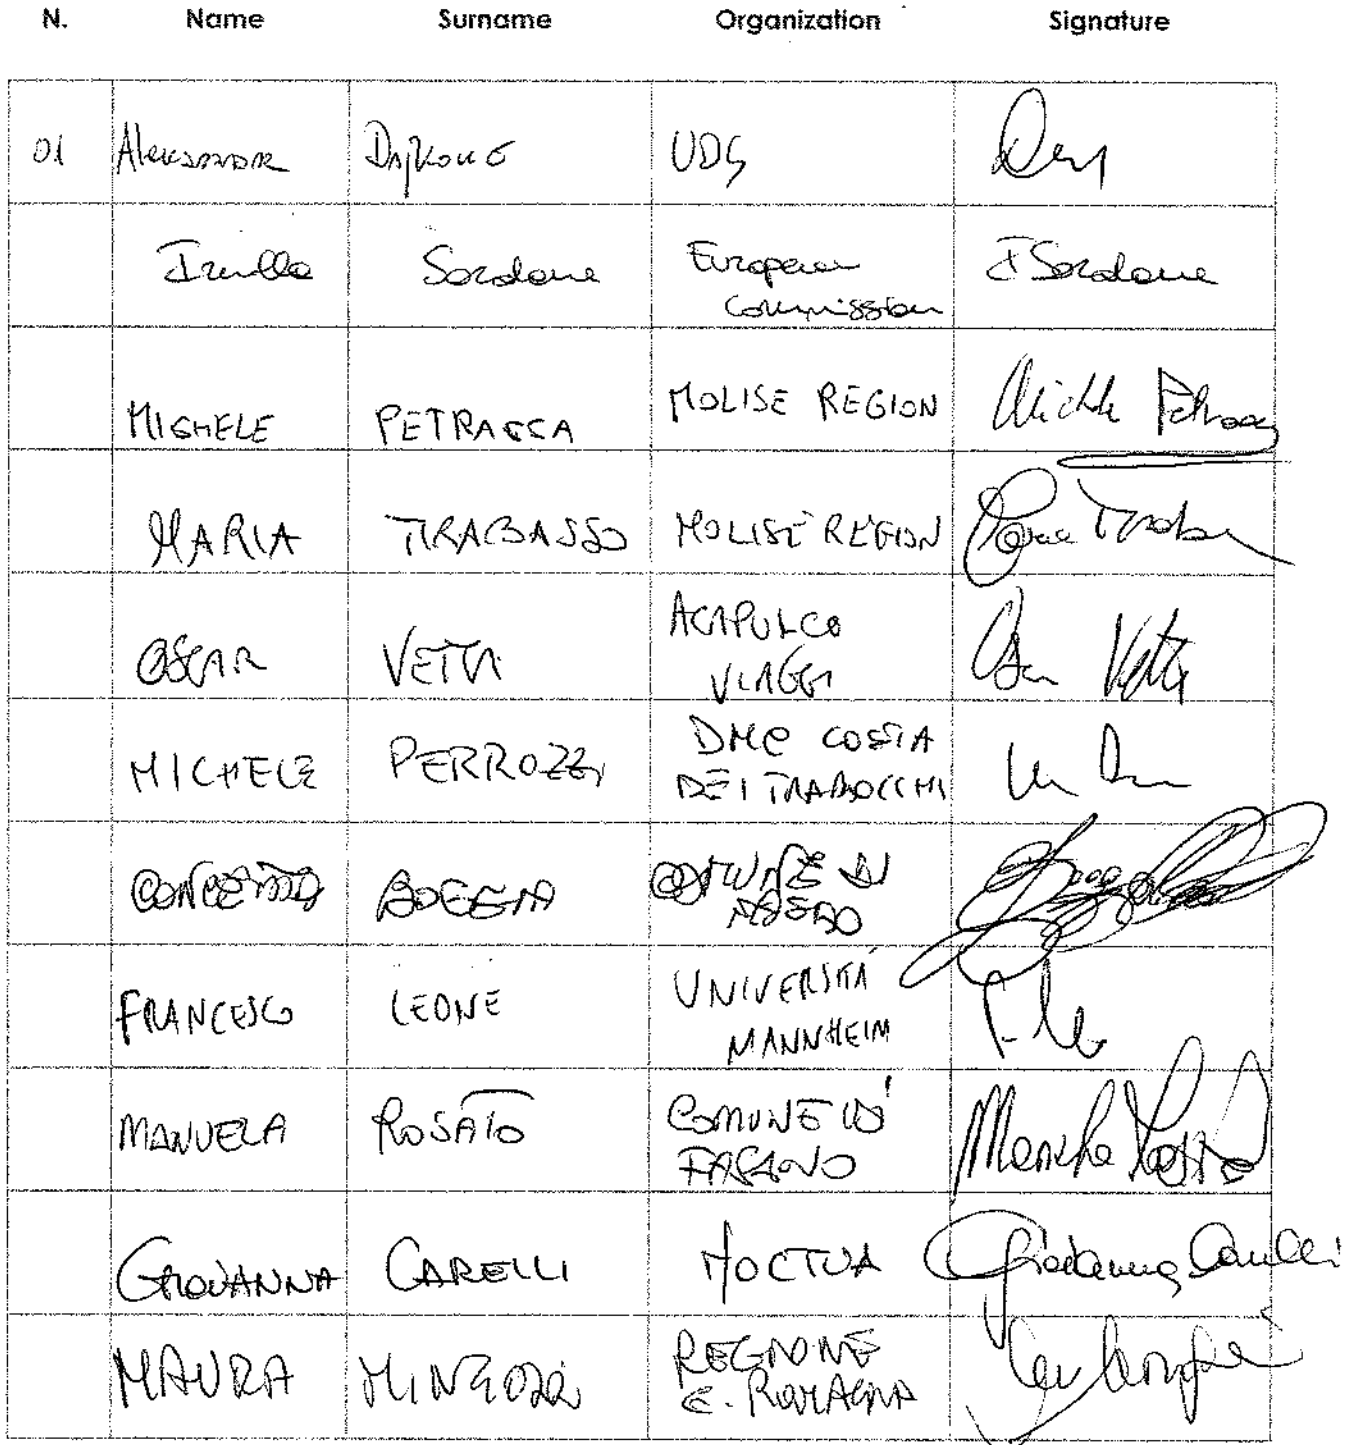 N. Name Surname Organization Signature
01 Aleksandar UDG
Sardone European
Commission I Sardone
MICHELE PETRACCA MOLISE REGION Michele Petracca
MARIA TIRABASSO MOLISE REGION
OSCAR VETTA ACAPULCO
VIAGGI Oscar Vetta
MICHELE PERROZZI DMC COSTA
DEI TRABOCCHI
COMUNE DI
FRANCESCO LEONE UNIVERSITÁ
MANNHEIM
MANUELA ROSATO COMUNE DI
FASANO Manuela Rosato
GIOVANNA CARELLI NOCTUA Giovanna Carelli
MAURA MINGOZZI REGIONE
E. ROMAGNA